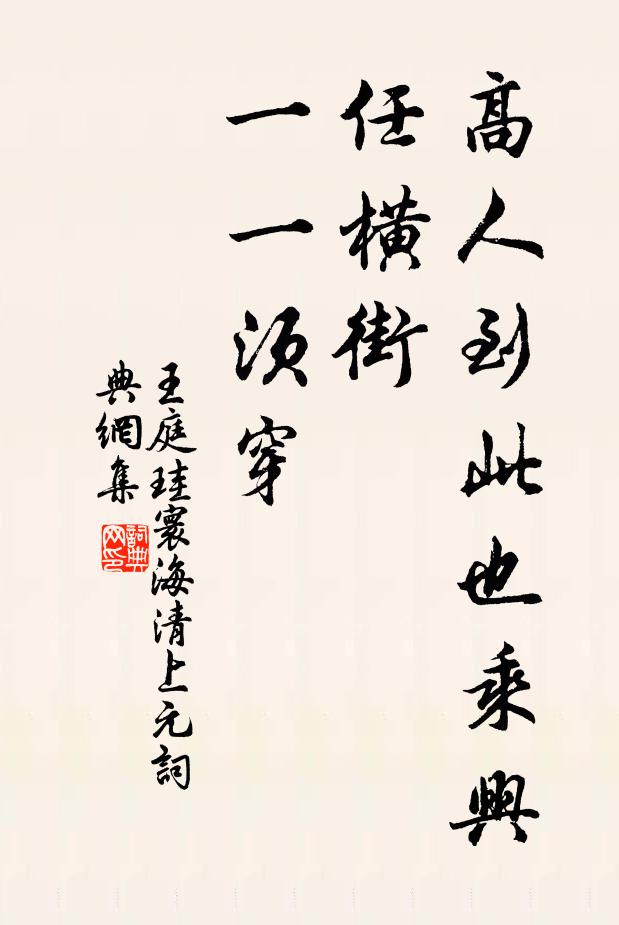 高人到此也乘興
任橫街
一一須穿
王庭珪寰海清上元詞
典網集
詞典
网印